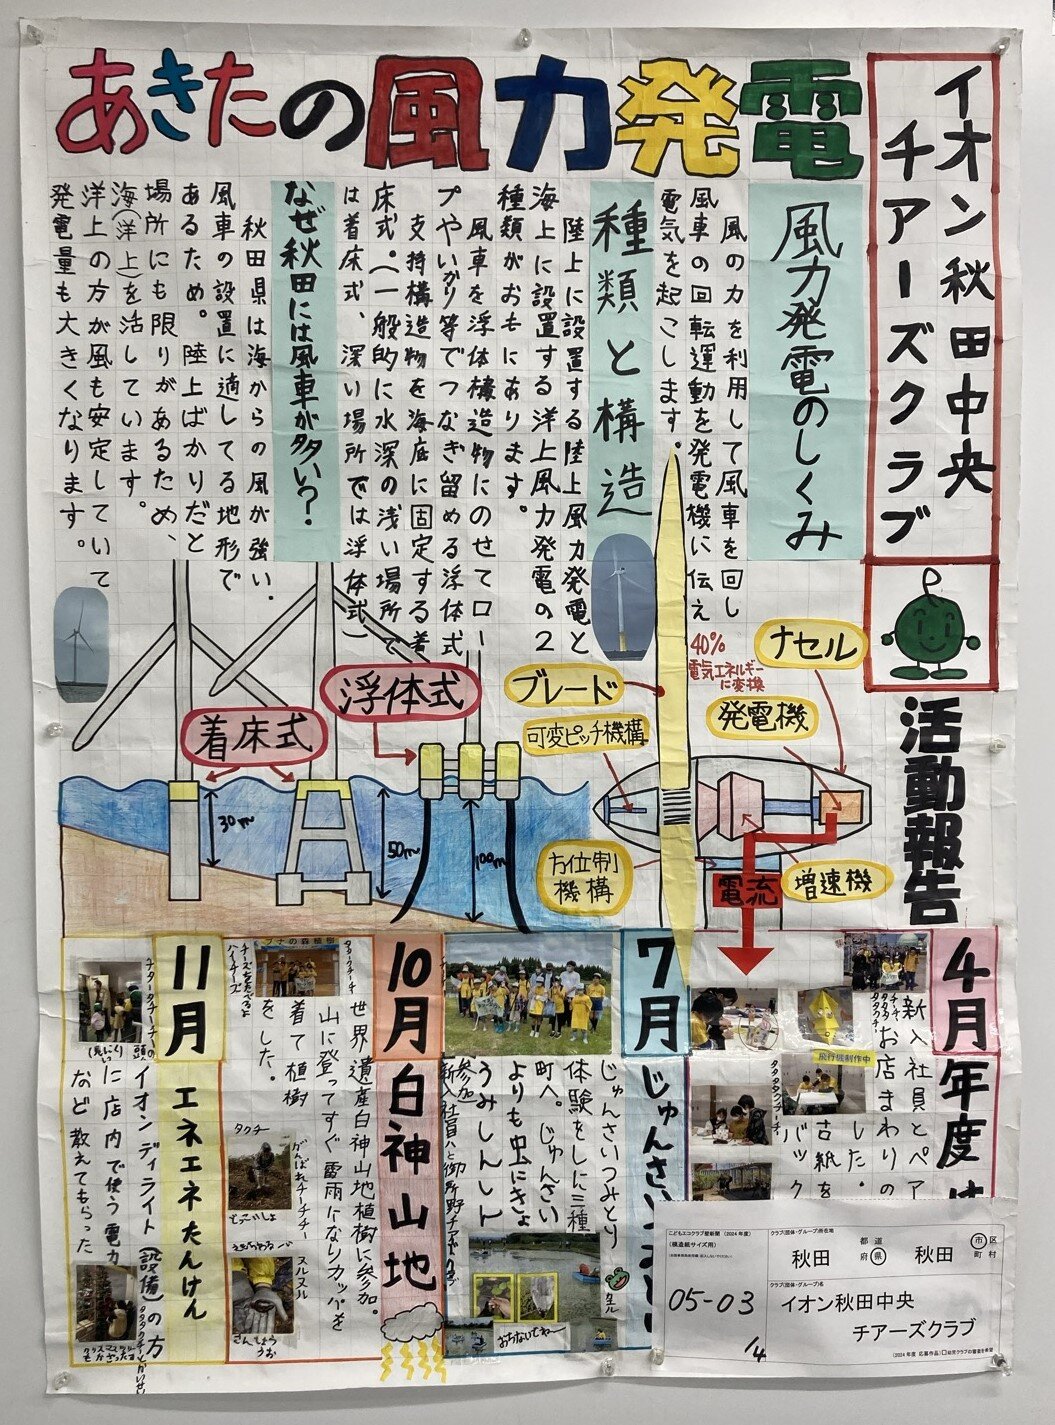 あきたの風力発電
イオン秋田中央
チアーズクラブ
活動報告
風力発電のしくみ
風の力を利用して風車を回し
風車の回転運動を発電機に伝え
電気を起こします。
種類と構造
陸上に設置する陸上風力発電と
海上に設置する洋上風力発電の2
種類がおもにあります。
風車を浮体構造物にのせてロー
プやいかり等でつなぎ留める浮体式
支持構造物を海底に固定する着
床式。(一般的に水深の浅い場所で
は着床式、深い場所では浮体式)
なぜ秋田には風車が多い?
秋田県は海からの風が強い、
風車の設置に適してる地形で
あるため。陸上ばかりだと
場所にも限りがあるため、
海(洋上)を活しています。
洋上の方が風も安定していて
発電量も大きくなります。
ナセル
40%
電気エネルギー
に変換
発電機
ブレード
可変ピッチ機構
方位制
機構
電流
増速機
浮体式
着床式
30m
50m
100m
4月
年度
新入社員とペア
お店まわりの
した。
古紙を
バック
飛行機制作中
7月
じゅんさい
じゅんさいつみとり
体験をしに三種
町へ。じゅんさい
よりも虫にきょ
うみしんしん
おちないでねー
10月
白神山地
世界遺産白神山地植樹に参加。
山に登ってすぐ雷雨になりカッパを
着て植樹
をした。
ブナの森植樹
タクチ
がんばれチーチチー
どっこいしょ
ヌルヌル
さんしょう
うお
11月
エネエネたんけん
イオンディライト(設備)の方
に店内で使う電力
など教えてもらった
こどもエコクラブ壁新聞(2024年度)
(模造紙サイズ用)
05-03
1/4
クラブ(団体・グループ)所在地
秋田 都道府県 秋田 市区町村
クラブ(団体・グループ)名
イオン秋田中央
チアーズクラブ
(2024年度 応募作品)□幼児クラブの審査を希望